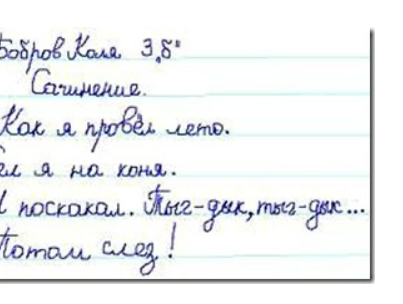 Бобров Коля 3„б"
Сочинение.
Как я провёл лето.
ел я на коня.
И поскакал. Тыг-дык, тыг-дык...
Потом слез!